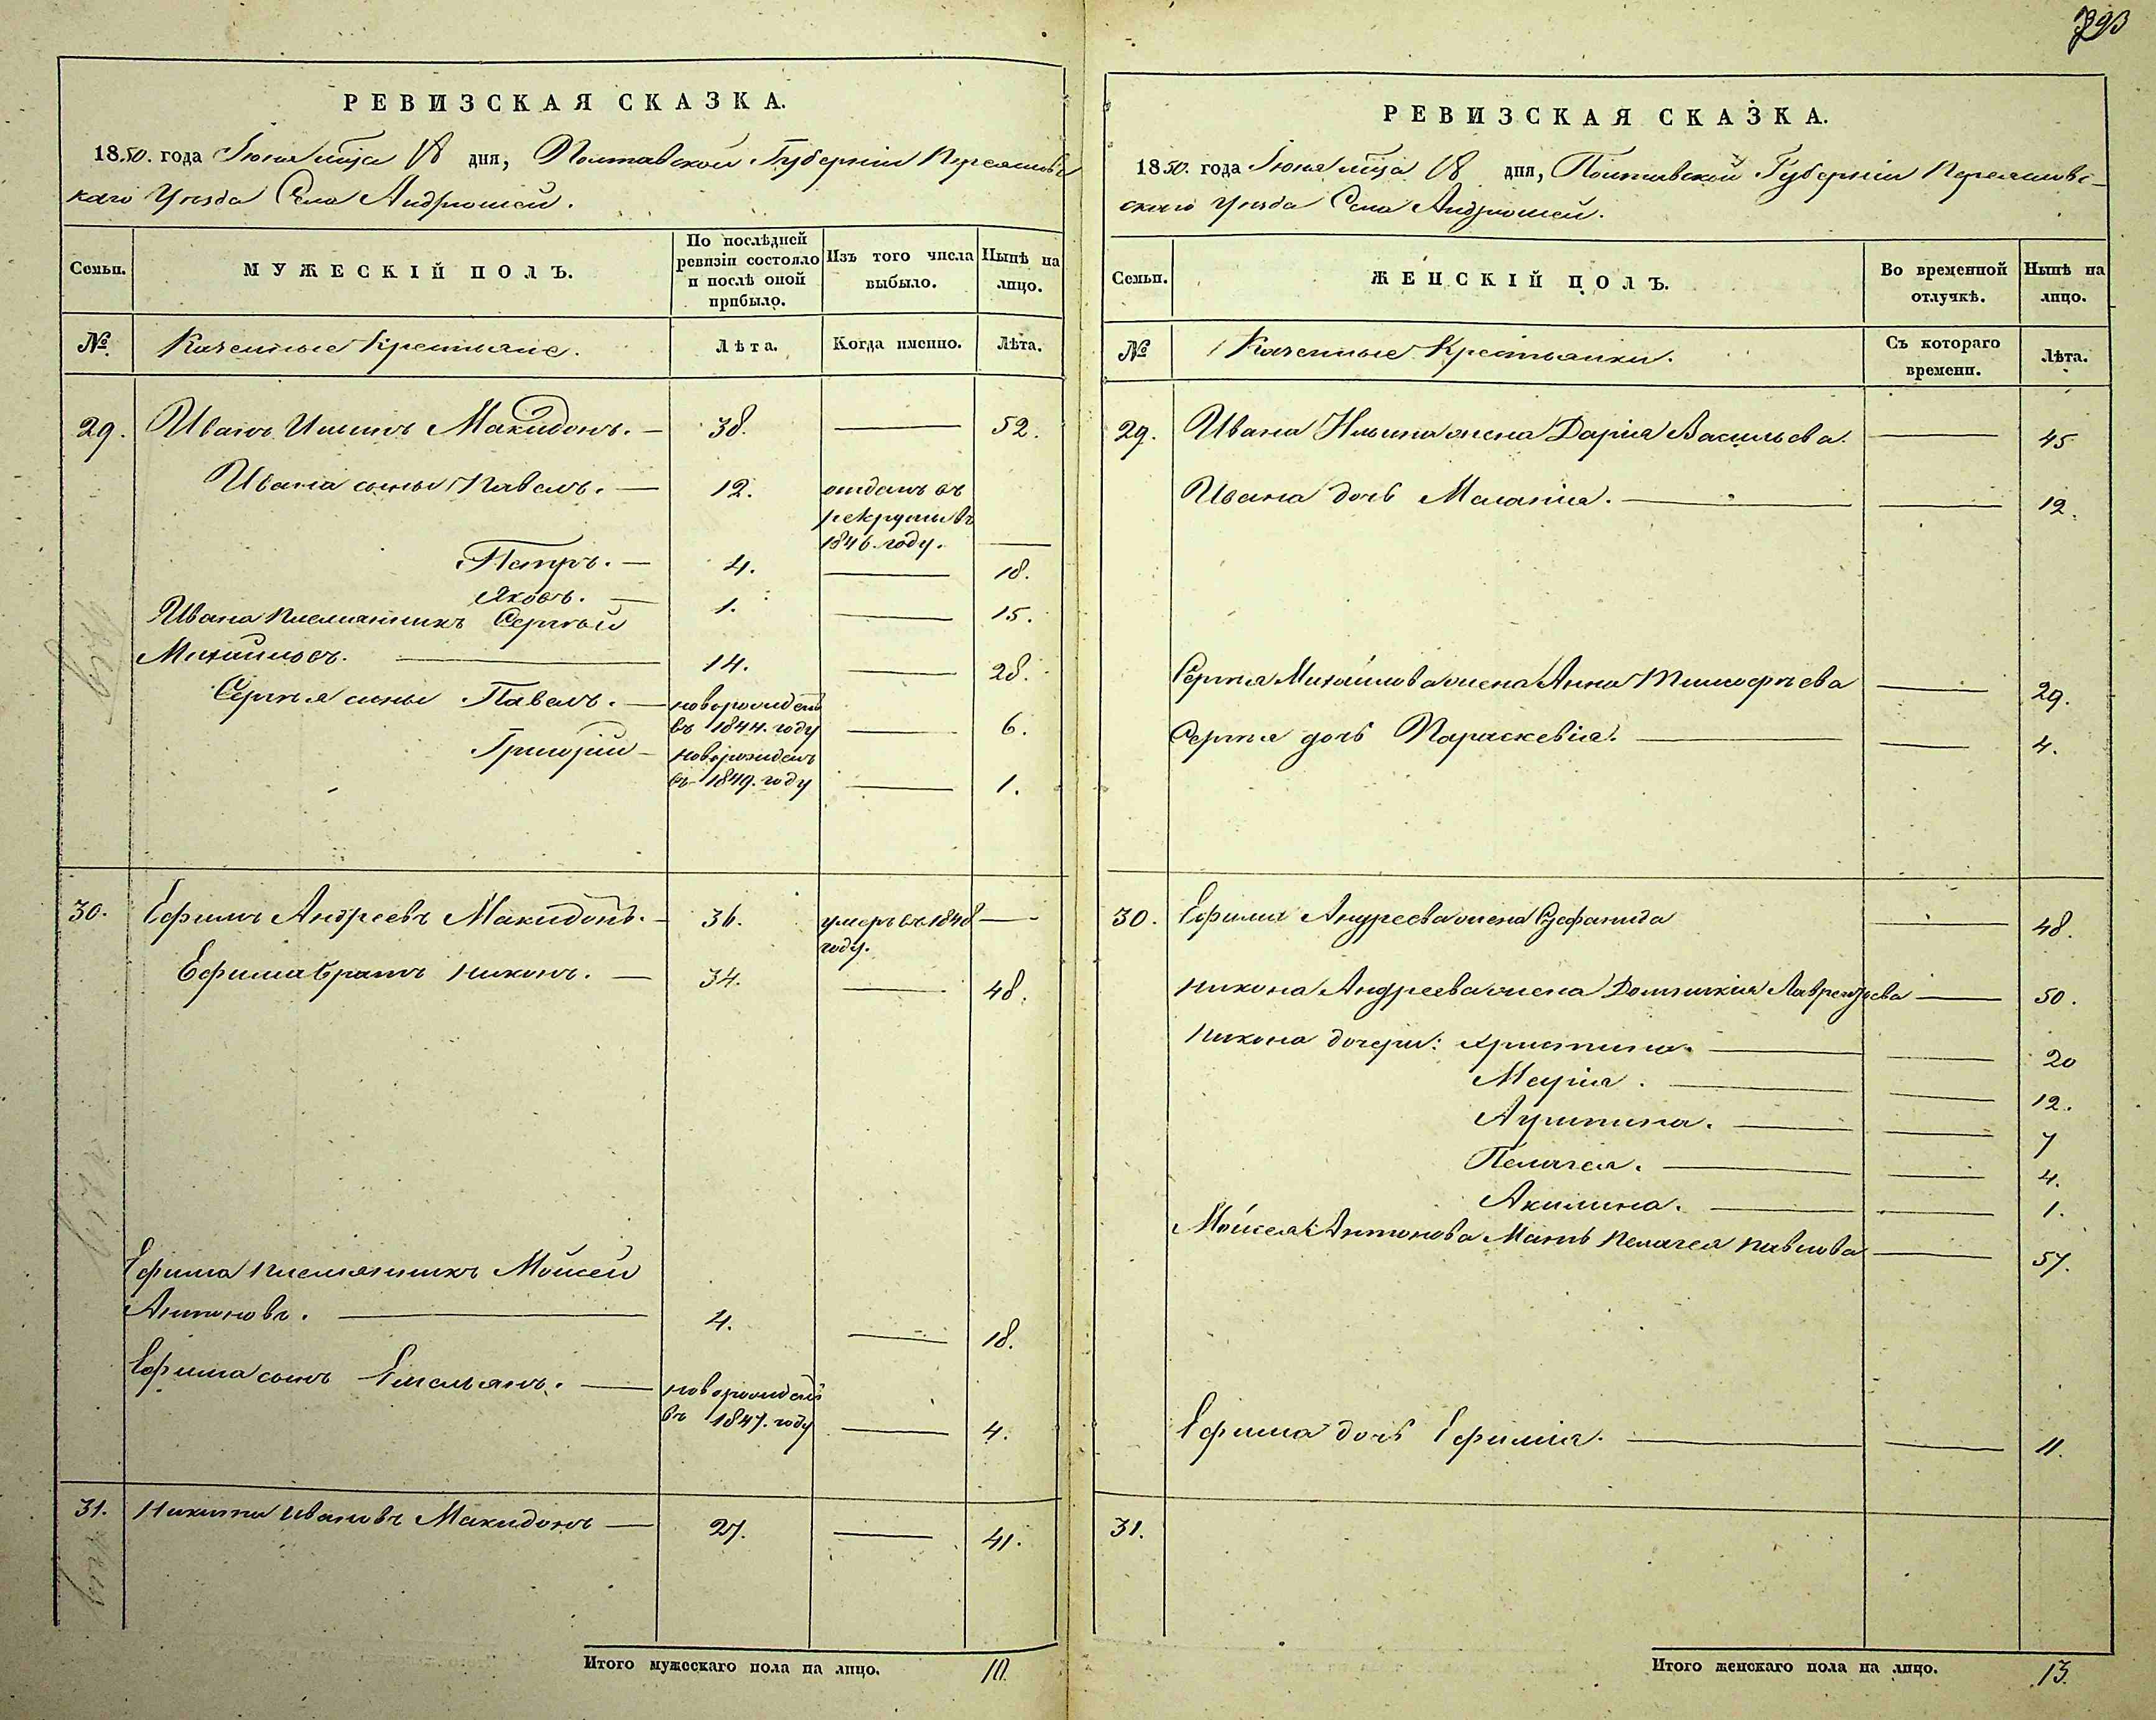 РЕВИЗСКАЯ СКАЗКА.
1850. года Іюня мѣсца 18 дня, Полтавской Губерніи Переяслов
скаго Уѣзда Села Андрюшей.
Семьи.
МУЖЕСКІЙ ПОЛЪ.
По послѣдней ревизіи состояло и послѣ оной прибыло.
Изъ того числа выбыло.
Нынѣ на лицо.
№
Казенные Крестьяне.
Лѣта.
Когда именно.
Лѣта.
29. Иванъ Ильинъ Македонъ. — 38. — 52.
Ивана сыны Павелъ. — 12. отданъ въ
рекруты въ
1846 году. —
Петръ. — 4. — 18.
Яковъ. — 1. — 15.
Ивана племянникъ Сергѣй
Михайловъ. — 14. — 28.
Сергѣя сыны Павелъ. — новорожденъ
въ 1844. году — 6.
Григорій — новорожденъ
въ 1849. году — 1.
30. Ефимъ Андреевъ Македонъ. — 36. умеръ въ 1848 —
году.
Ефима братъ Никонъ. — 34. — 48.
Ефима племянникъ Мойсей
Антоновъ. — 4. — 18.
Ефима сынъ Емельянъ. — новорожденъ
въ 1847. году — 4.
31. Никита Ивановъ Македонъ — 27. — 41.
Итого мужескаго пола на лицо. 10.
793
РЕВИЗСКАЯ СКАЗКА.
1850. года Іюня мѣсца 18 дня, Полтавской Губерніи Переяслов-
скаго Уѣзда Села Андрюшей.
Семьи.
ЖЕНСКІЙ ПОЛЪ.
Во временной отлучкѣ.
Нынѣ на лицо.
№
Казенные Крестьянки.
Съ котораго времени.
Лѣта.
29. Ивана Ильина жена Дарія Васильева. — 45
Ивана дочь Маланія. — — 12.
Сергѣя Михайлова жена Анна Тимофѣева — 29.
Сергѣя дочь Параскевія. — — 4.
30. Ефима Андреева жена — 48.
Никона Андреева жена Домникія Лаврентьева — 50.
Никона дочери: Христина. — — 20
Марія. — — 12.
— — 7
Пелагея. — — 4.
Акилина. — — 1.
Мойсея Антонова Мать Пелагея Павлова — 57.
Ефима дочь Ефимія. — — 11.
31.
Итого женскаго пола на лицо. 13.